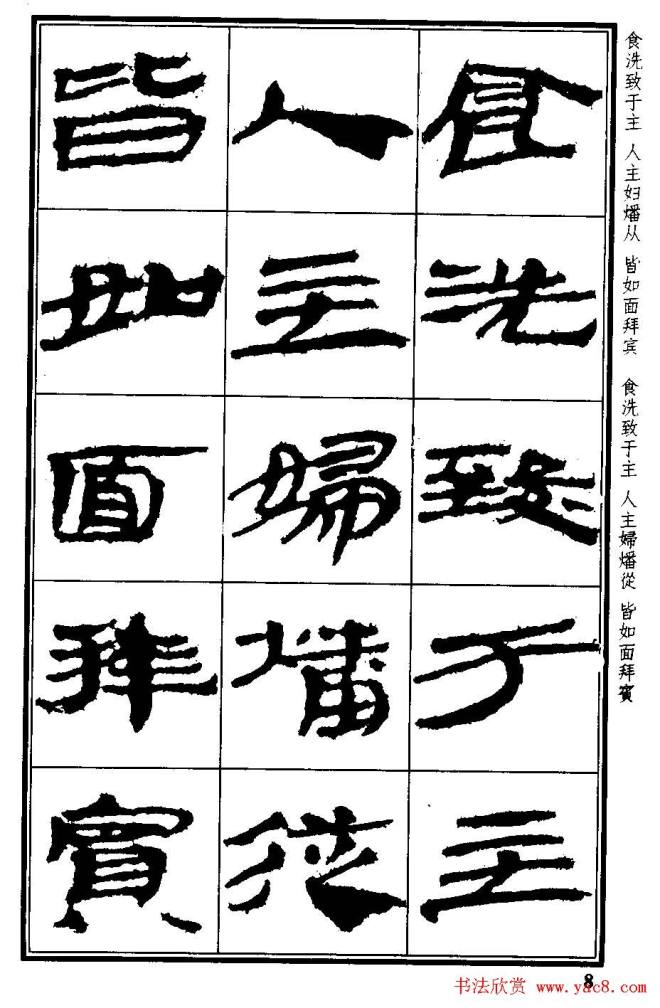 食洗致于主
人主婦燔從
皆如面拜賓
食洗致于主 人主妇燔从 皆如面拜宾 食洗致于主 人主婦燔從 皆如面拜賓
8
书法欣赏 www.yac8.com